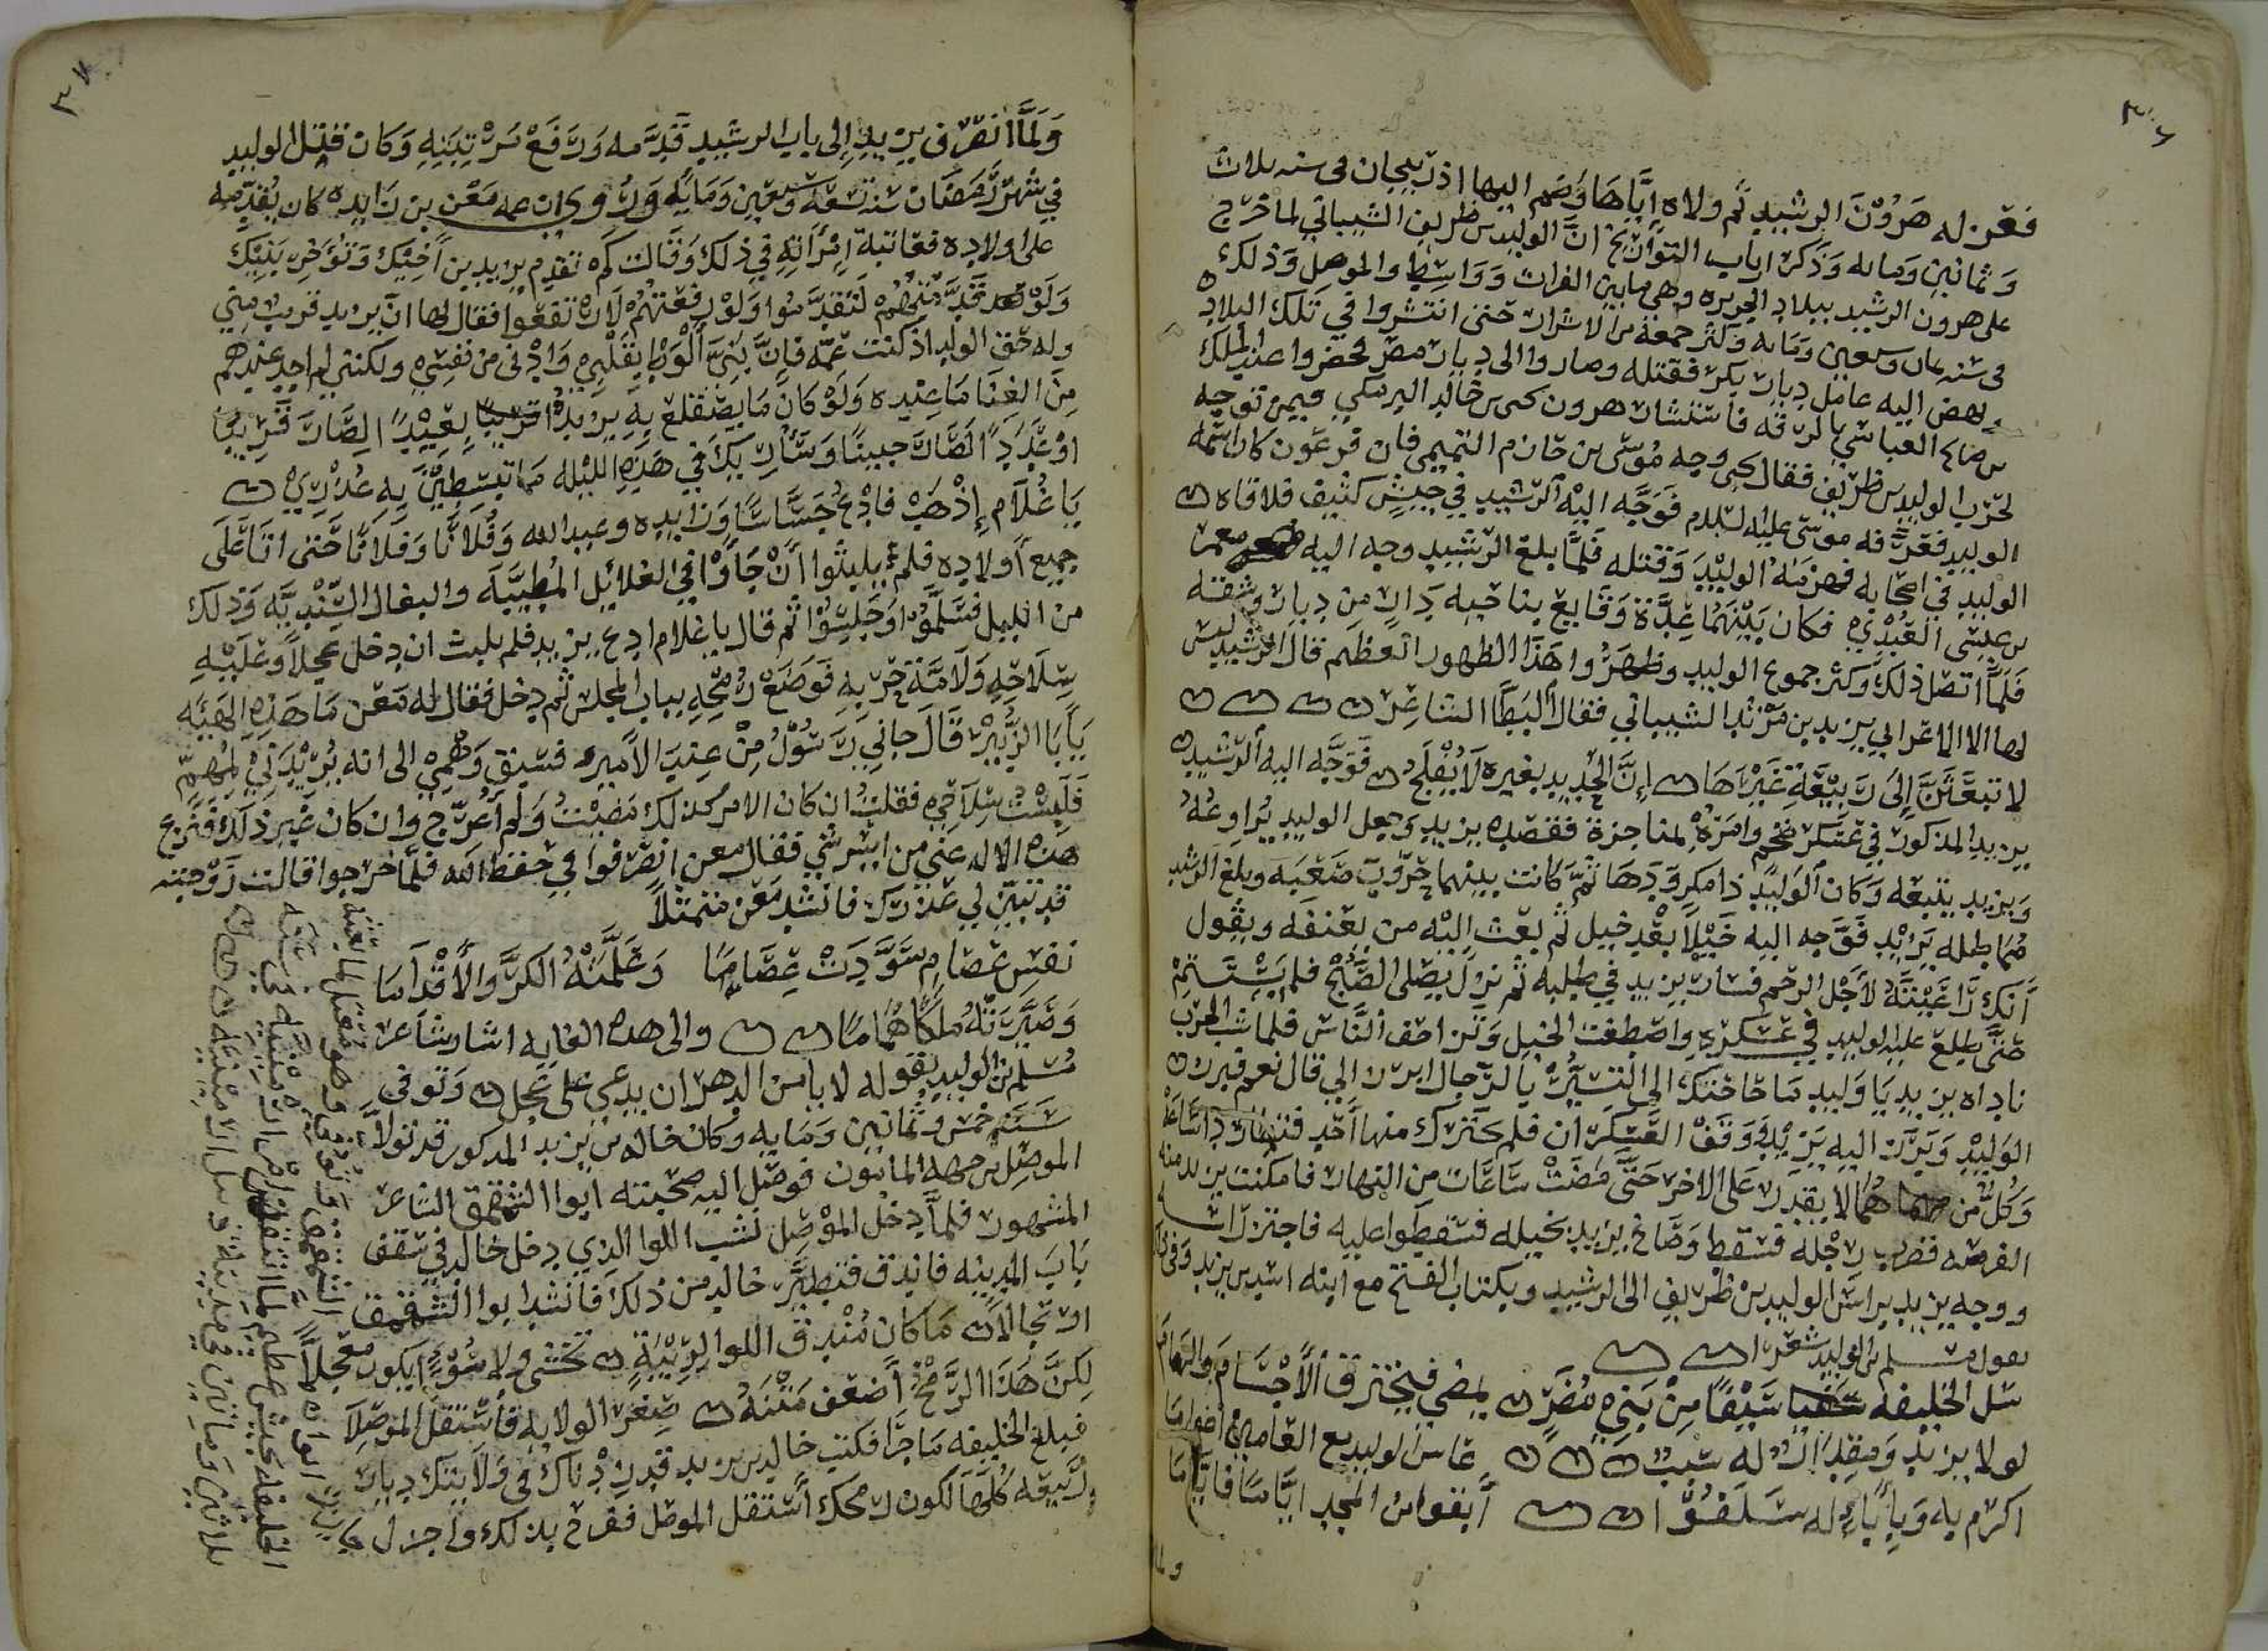 ٣٦
فعزله هرون الرشيد ثم ولاه اياها وضم اليها اذربيجان في سنه ثلاث
وثمانين ومايه وذكر ارباب التواريخ ان الوليد بن طريف الشيباني لما خرج
على هرون الرشيد ببلاد الجزيره وهي ما بين الفرات وواسط والموصل وذلك
في سنه ثمان وسبعين ومايه وكثر جمعه من الاشرار حتى انتشروا في تلك البلاد
نهض اليه عامل ديار بكر فقتله وصاروا الى ديار مضر فحضروا عبد الملك
بن صالح العباسي بالرقه فاستشار هرون يحيى بن خالد البرمكي فيمن توجه
لحرب الوليد بن طريف فقال يحيى وجه موسى بن حازم التميمي فان فرعون كان اسمه
الوليد فغرقه موسى عليه السلام فوجه اليه الرشيد في جيش كثيف فلاقاه
الوليد في اصحابه فهزمه الوليد وقتله فلما بلغ الرشيد وجه اليه معمر
بن عيسى العبدي فكان بينهما عدة وقايع بناحيه دارا من ديار ربيعه
فلما اتصل ذلك وكثر جموع الوليد وظهروا هذا الظهور العظيم قال الرشيد ليس
لها الا الاعرابي يزيد بن مزيد الشيباني فقال البطا الشاعر
لا تبعثن الى ربيعة غيرها ان الحديد بغيره لا يفلح فوجه اليه الرشيد
يزيد المذكور في عسكر ضخم وامره بمناجزة فقصده يزيد وجعل الوليد يراوغه
ويزيد يتبعه وكان الوليد ذا مكر ودها ثم كانت بينهما حروب صعبه وبلغ الرشيد
مماطله يزيد فوجه اليه خيلا بعد خيل ثم بعث اليه من يعنفه ويقول
انك راعيته لاجل الرحم فسار يزيد في طلبه ثم نزل يصلي الصبح فلم يستتم
حتى طلع عليه الوليد في عسكره واصطفت الخيل وتزاحف الناس فلما شب الحرب
ناداه يزيد يا وليد ما حاجتك الى التستر بالرجال ابرز الي قال نعم فبرز
الوليد وبرز اليه يزيد ووقف العسكران فلم يتحرك منها احد فتطاردا ساعة
وكل منهما لا يقدر على الاخر حتى مضت ساعات من النهار فامكنت يزيد منه
الفرصه فضرب رجله فسقط وصاح يزيد بخيله فسقطوا عليه فاجتزوا راسه
ووجه يزيد براس الوليد بن طريف الى الرشيد وبكتاب الفتح مع ابنه اسد بن يزيد وفي ذلك
يقول مسلم بن الوليد شعرا
سل الخليفه سيفا من بني مضر يمضي فيخترق الاجسام والهاما
لولا يزيد ومقدار له سبب عاش الوليد مع العامين اعواما
اكرم به وبآباء له سلفوا ابقوا من المجد اياما فاياما
ولما
٣٧
ولما انصرف يزيد الى باب الرشيد قدمه ورفع مرتبته وكان قتل الوليد
في شهر رمضان سنه تسعه وسبعين ومايه وروي ان عمه معن بن زايده كان يقدمه
على اولاده فعاتبته امراته في ذلك وقالت كم تقدم يزيد بن اخيك وتوخر بنيك
ولو قدمتهم لتقدموا ولو رفعتهم لارتفعوا فقال لها ان يزيد قريب مني
وله حق الولد اذ كنت عمه فان بني الوط بقلبي وادنى من نفسي ولكنني لم اجد عندهم
من الغنا ما عنده ولو كان ما يضطلع به يزيد بعيدا لصار قريبا
او عدوا لصار حبيبا وساريك في هذه الليله ما تبسطين به عذري
يا غلام اذهب فادع جساسا وزايده وعبد الله وفلانا وفلانا حتى اتا على
جميع اولاده فلم يلبثوا ان جاوا في الغلايل المطيبه والبغال السنديه وذلك
من الليل فسلموا وجلسوا ثم قال يا غلام ادع يزيد فلم يلبث ان دخل عجلا وعليه
سلاحه ولامة حربه فوضع رمحه بباب المجلس ثم دخل فقال له معن ما هذه الهيئه
يابا الزبير قال جاني رسول من عند الامير فسبق وهمي الى انه يريدني لمهم
فلبست سلاحي فقلت ان كان الامر كذلك مضيت ولم اعرج وان كان غير ذلك فنزع
هذه الاله عني من ايسر شي فقال معن انصرفوا في حفظ الله فلما خرجوا قالت زوجته
قد تبين لي عذرك فانشد معن متمثلا
نفس عصام سودت عصاما وعلمته الكر والاقداما
وصيرته ملكا هماما والى هذه الغايه اشار شاعر
مسلم بن الوليد بقوله لا يامن الدهر ان يدعى على عجل وتوفي
سنة خمس وثمانين ومايه وكان خالد بن يزيد المذكور قد تولا
الموصل من جهه المامون فوصل اليه صحبته ابوا الشمقمق الشاعر
المشهور فلما دخل الموصل نشب اللوا الذي دخل خالد في سقف
باب المدينه فاندق فتطير خالد من ذلك فانشد ابوا الشمقمق
ارتجالا ما كان مندق اللوا لريبة تخشى ولا سوءا يكون معجلا
لكن هذا الرمح اضعف متنه صغر الولايه فاستقل الموصلا
فبلغ الخليفه ما جرا فكتب خالد بن يزيد قد زدناك في ولايتك ديار
ربيعه كلها لكون رمحك استقل الموصل ففرح بذلك واجزل